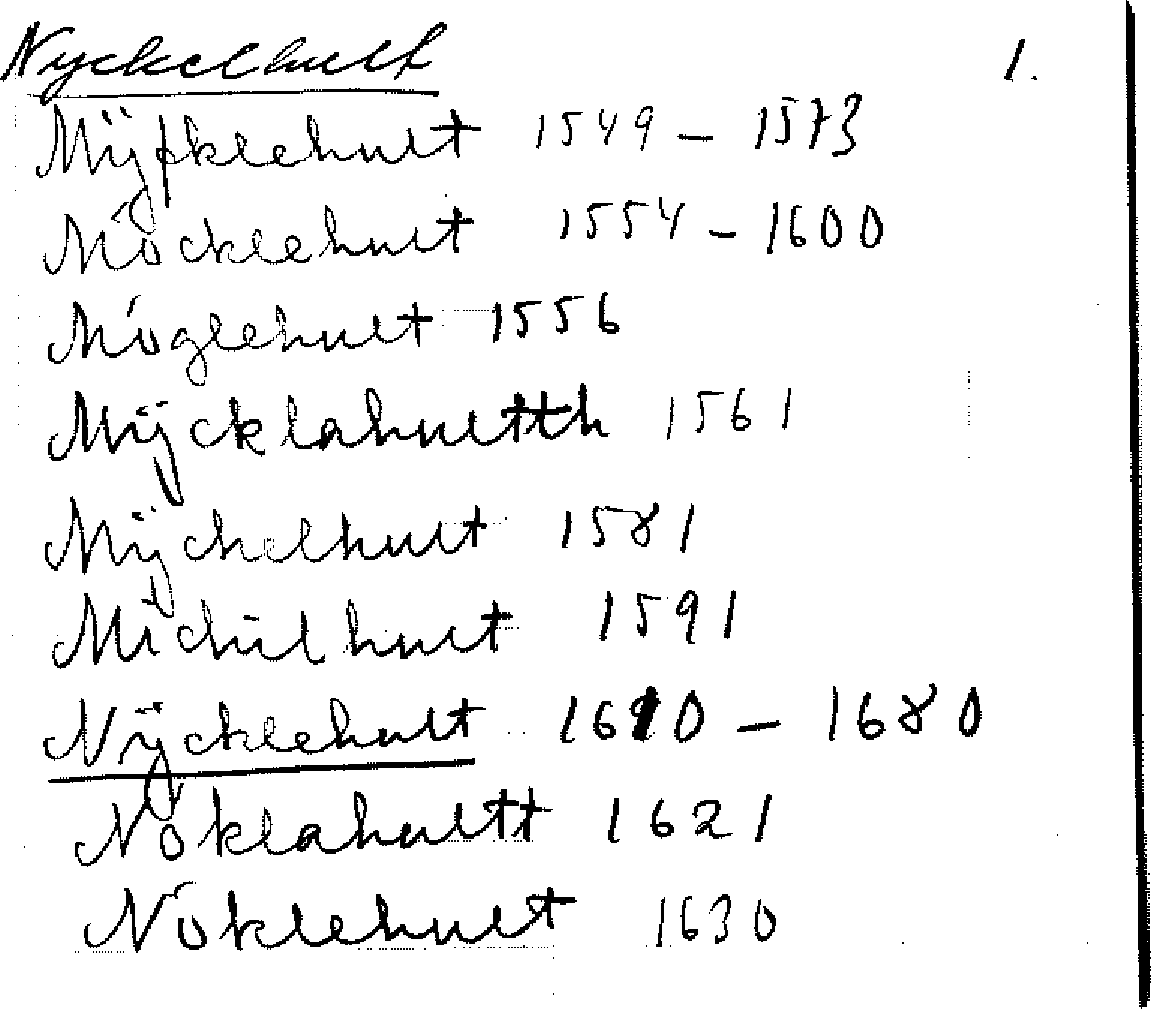 Nyckelhult 1.
Mÿkklehult 1549 – 1573
Möcklehult 1554 – 1600
Möglehult 1556
Mÿcklahultth 1561
Mÿchelhult 1581
Michilhult 1591
Nÿcklehult 1610 – 1680
Nöklahultt 1621
Nöklehult 1630